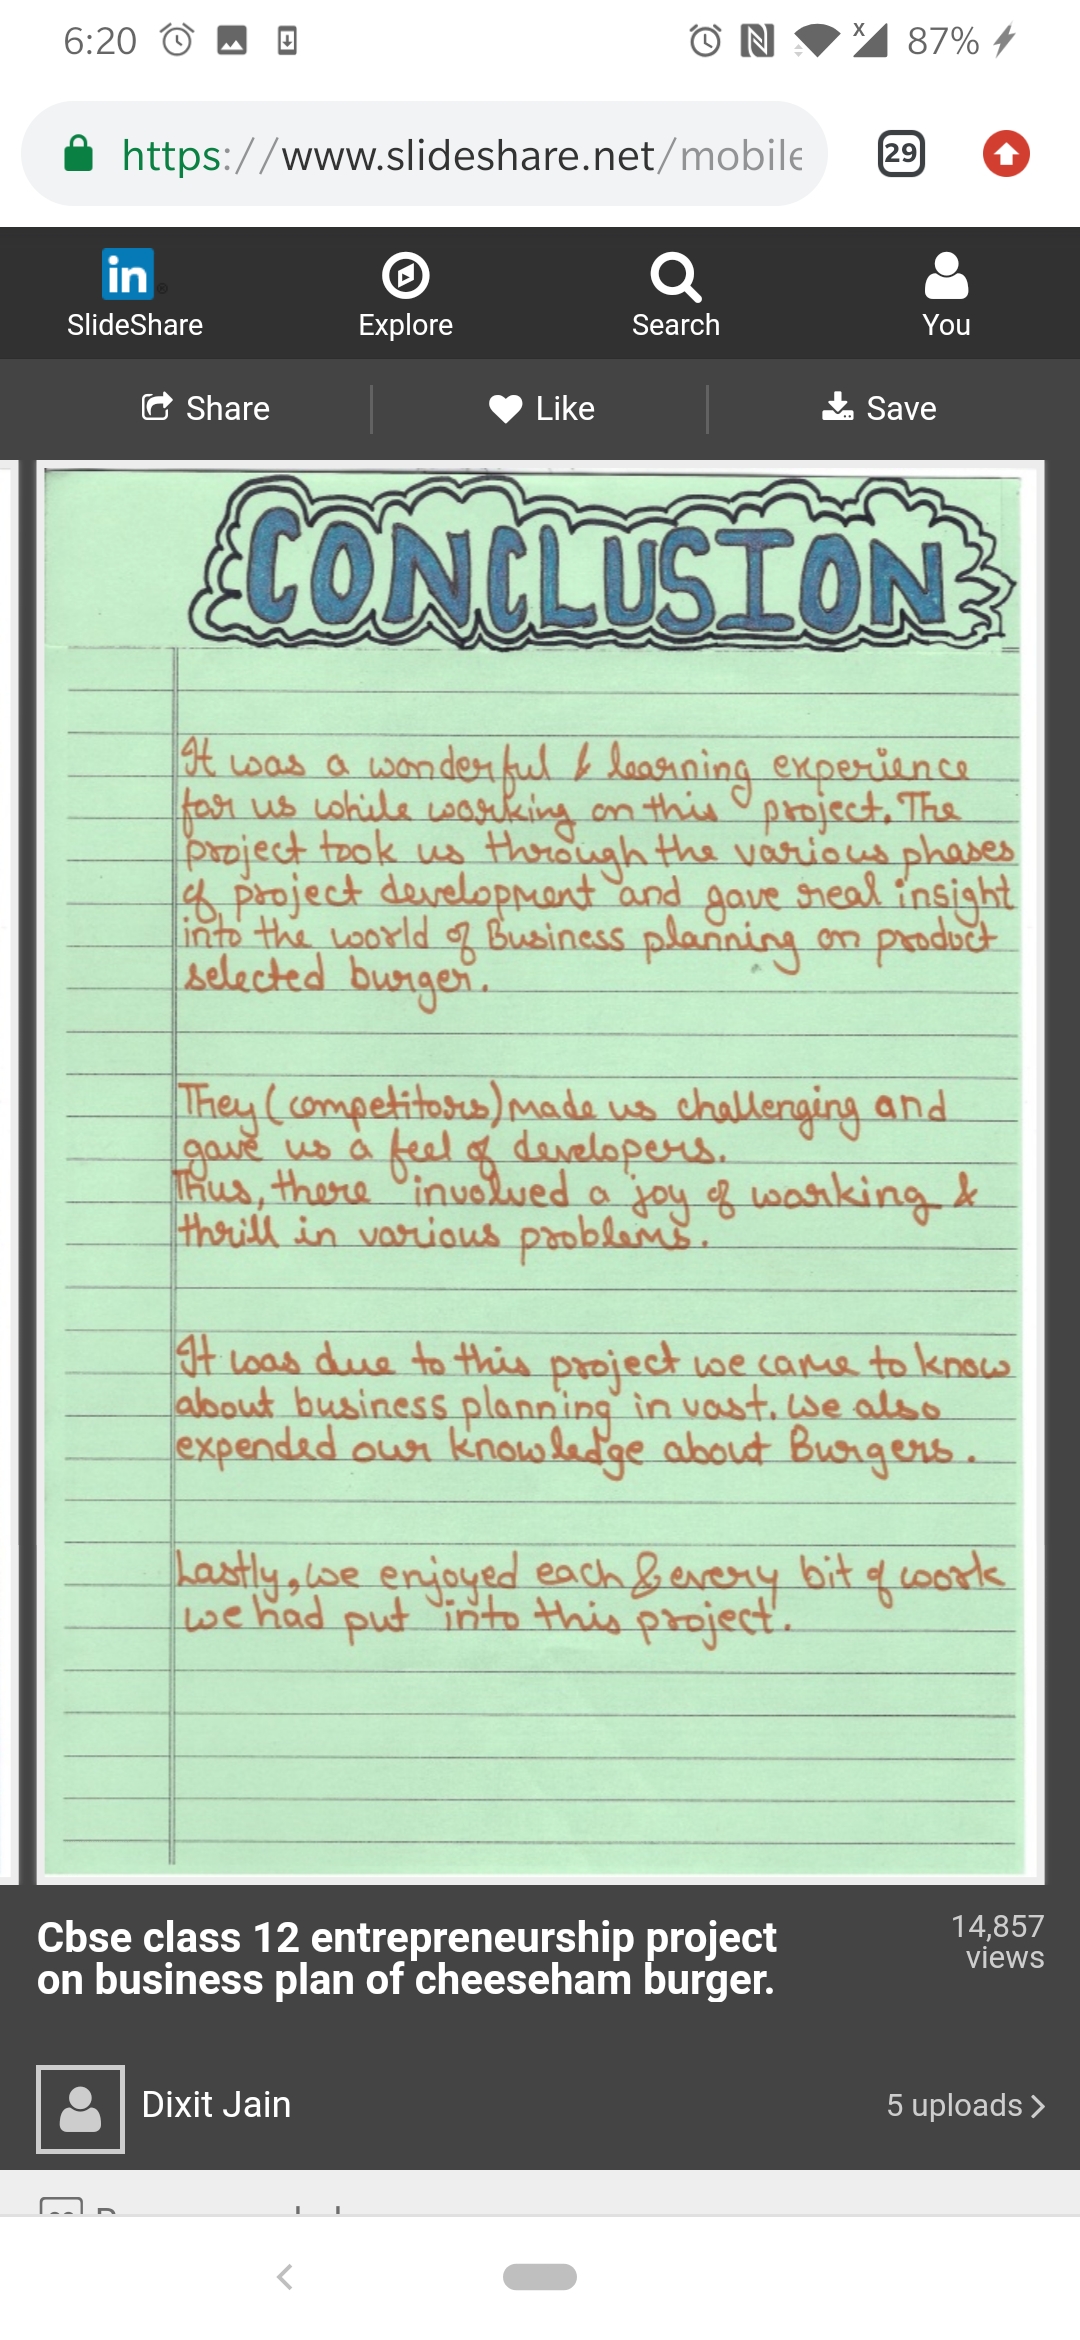 6:20
87%
https://www.slideshare.net/mobile
29
in
SlideShare
Explore
Search
You
Share
Like
Save
CONCLUSION
It was a wonderful & learning experience
for us while working on this project. The
project took us through the various phases
of project development and gave real insight
into the world of Business planning on product
selected burger.
They (competitors) made us challenging and
gave us a feel of developers.
Thus, there involved a joy of working &
thrill in various problems.
It was due to this project we came to know
about business planning in vast. We also
expended our knowledge about Burgers.
Lastly, we enjoyed each & every bit of work
we had put into this project.
Cbse class 12 entrepreneurship project
on business plan of cheeseham burger.
14,857
views
Dixit Jain
5 uploads